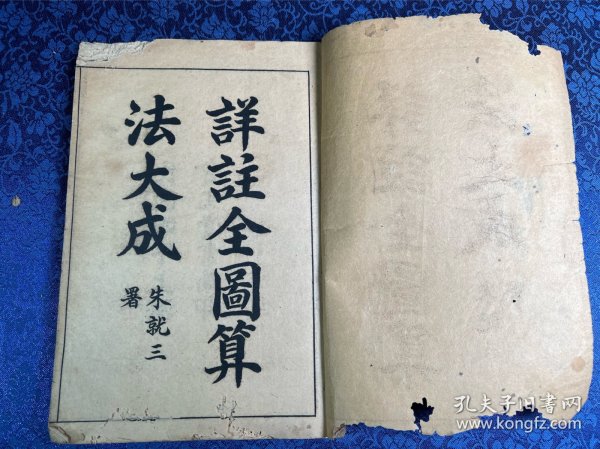 詳註全圖算
法大成
朱就三
署
孔夫子旧书网
www.kongfz.com